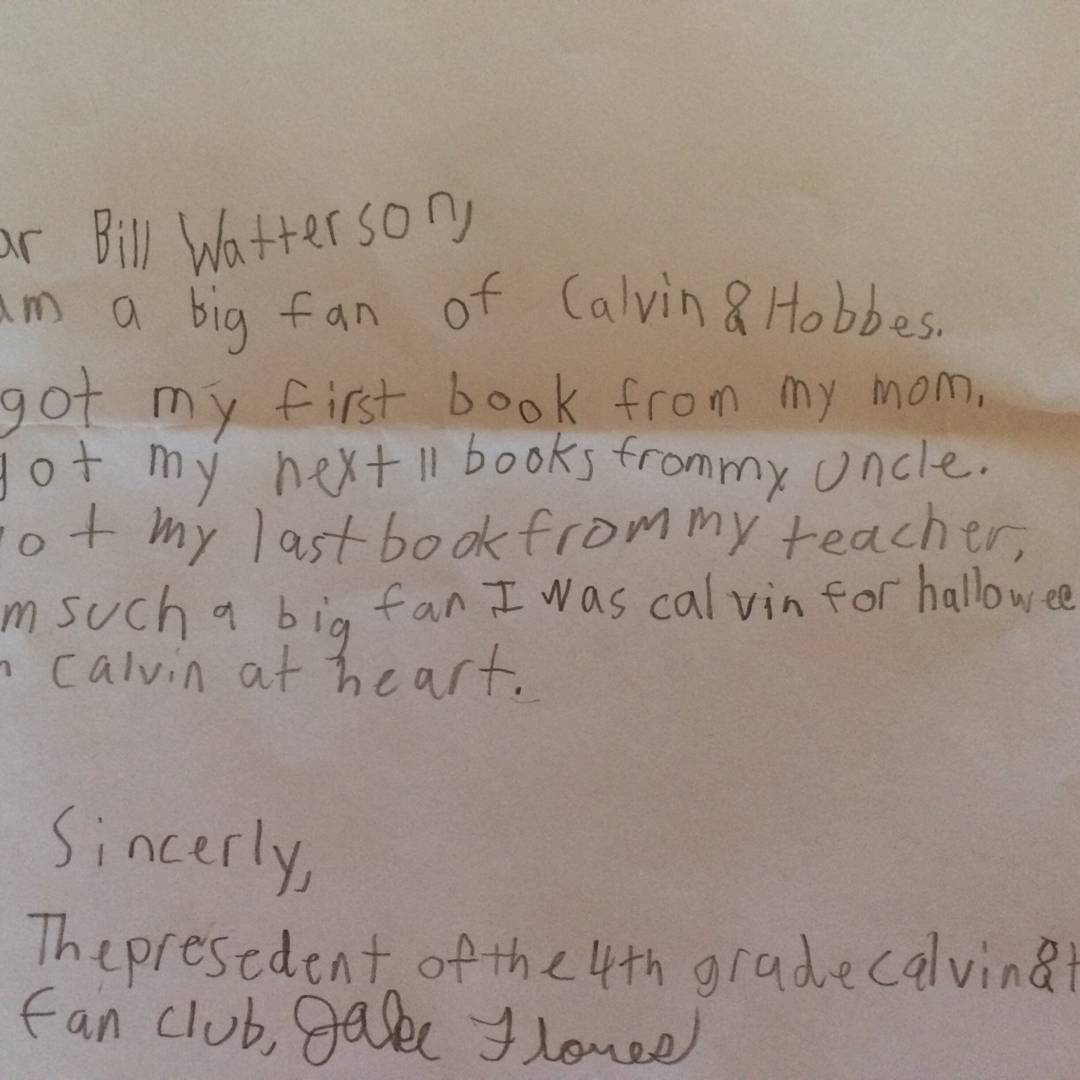 ar Bill Watterson,
am a big fan of Calvin & Hobbes.
got my first book from my mom.
got my next 11 books from my uncle.
ot my last book from my teacher,
m such a big fan I was calvin for hallowee
n calvin at heart.
Sincerly,
The presedent of the 4th grade calvin & H
fan club, Jake Flores